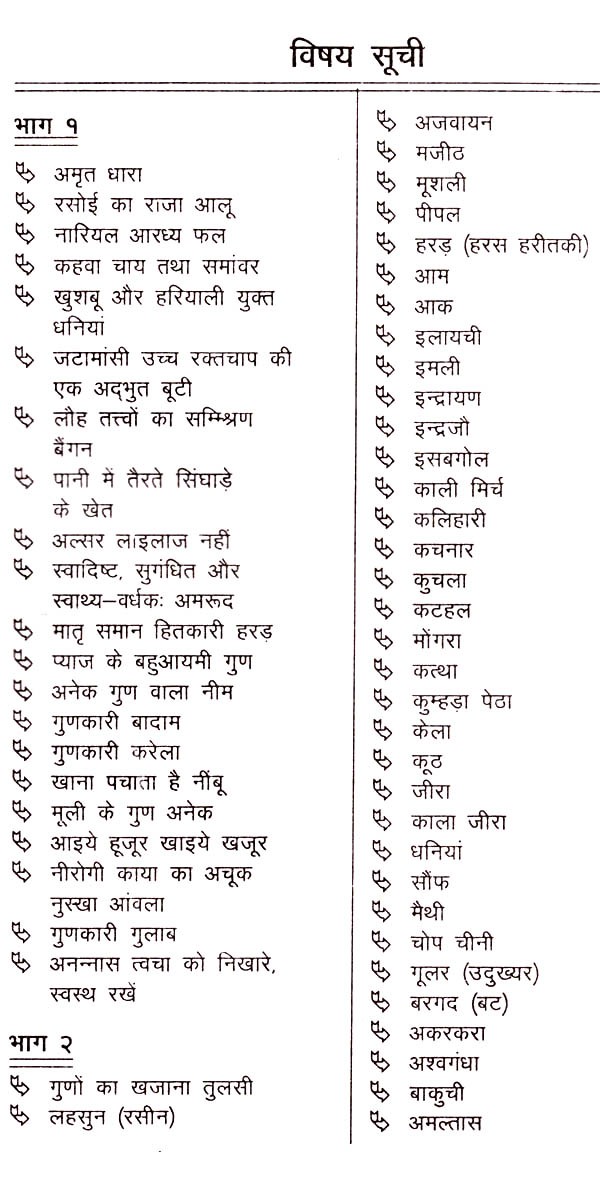 विषय सूची
भाग १
अमृत धारा
रसोई का राजा आलू
नारियल आरध्य फल
कहवा चाय तथा समांवर
खुशबू और हरियाली युक्त
धनियां
जटामांसी उच्च रक्तचाप की
एक अद्भुत बूटी
लौह तत्त्वों का सम्मिश्रण
बैंगन
पानी में तैरते सिंघाड़े
के खेत
अल्सर लाइलाज नहीं
स्वादिष्ट, सुगंधित और
स्वाथ्य–वर्धकः अमरूद
मातृ समान हितकारी हरड़
प्याज के बहुआयमी गुण
अनेक गुण वाला नीम
गुणकारी बादाम
गुणकारी करेला
खाना पचाता है नींबू
मूली के गुण अनेक
आइये हूजूर खाइये खजूर
नीरोगी काया का अचूक
नुस्खा आंवला
गुणकारी गुलाब
अनन्नास त्वचा को निखारे,
स्वस्थ रखें
भाग २
गुणों का खजाना तुलसी
लहसुन (रसीन)
अजवायन
मजीठ
मूशली
पीपल
हरड़ (हरस हरीतकी)
आम
आक
इलायची
इमली
इन्द्रायण
इन्द्रजौ
इसबगोल
काली मिर्च
कलिहारी
कचनार
कुचला
कटहल
मोंगरा
कत्था
कुम्हड़ा पेठा
केला
कूठ
जीरा
काला जीरा
धनियां
सौंफ
मैथी
चोप चीनी
गूलर (उदुख्यर)
बरगद (बट)
अकरकरा
अश्वगंधा
बाकुची
अमल्तास